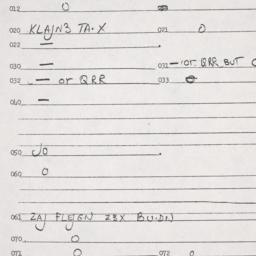 012 O
020 KLAJN3 TA·X 021 O
022 —
030 — 031 — or QRR BUT
032 — or QRR 033
040 —
050 JO
060 O
061 ZAJ FLEJGN ZBX BU·DN
070 O
071 O 072 O